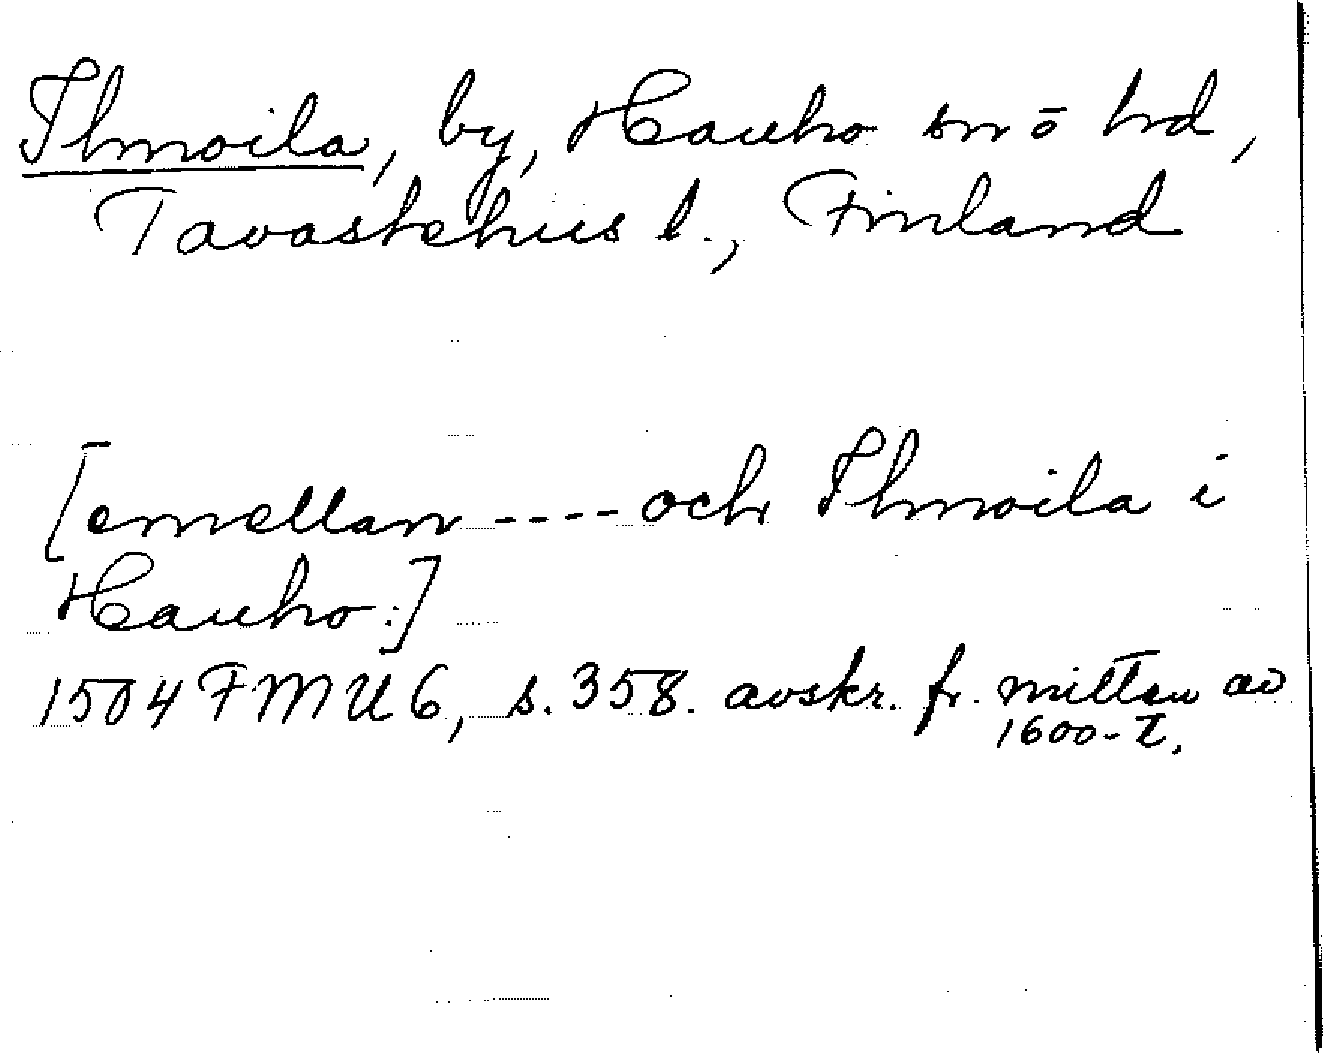 Ihmoila, by, Hauho sn ō hd,
Tavastehus l., Finland
[emellan ---- och Ihmoila i
Hauho.]
1504 FMU 6, s. 358. avskr. fr. mitten av
1600-t.